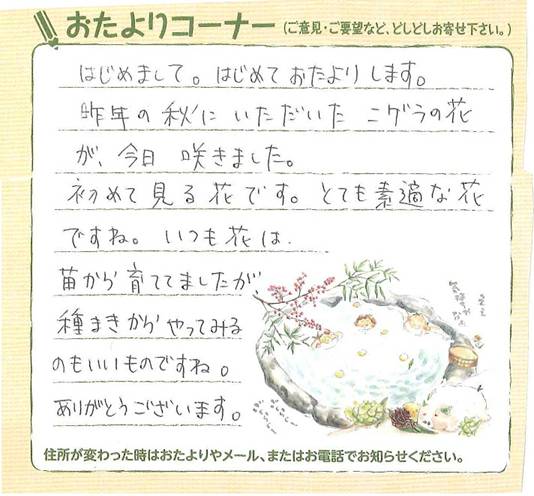 おたよりコーナー（ご意見・ご要望など、どしどしお寄せ下さい。）
はじめまして。はじめておたよりします。
昨年の秋にいただいたニゲラの花
が、今日咲きました。
初めて見る花です。とても素適な花
ですね。いつも花は、
苗から育ててましたが、
種まきからやってみる
のもいいものですね。
ありがとうございます。
住所が変わった時はおたよりやメール、またはお電話でお知らせください。